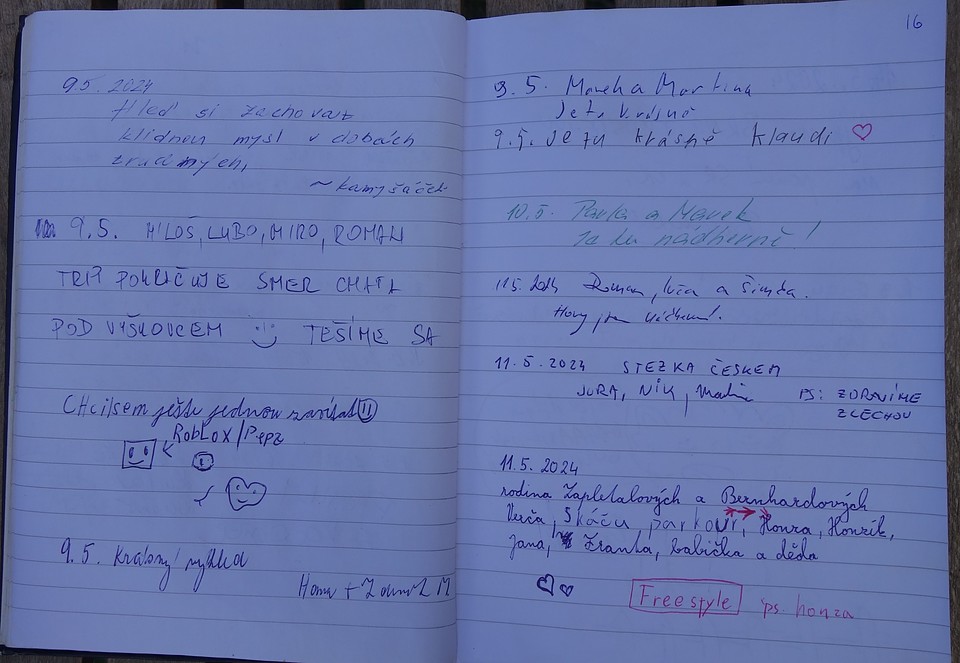 9.5. 2024
Hleď si zachovat
klidnou mysl v dobách
~ Kamyšáček
9.5. MILOŠ, LUBO, MIRO, ROMAN
TRIP POKRAČUJE SMER CHATA
POD VYŠKOVCEM :) TEŠÍME SA
CHtilsem ještě jednou zavítat
RobLox/Pepa
9.5. Krásný výhled
9.5. Marek a Martina
Je tu krásně
9.5. Je tu krásně klaudi ♡
10.5. Pavla a Marek
Je tu nádherně!
11.5. 2024 Roman, a Šimča.
Hory jsou
11.5.2024 STEZKA ČESKEM
JURA, NIK, Martin PS: ZDRAVÍME
ZLECHOV
11.5. 2024
rodina Zapletalových a Bernhardových
Verča, Skáču parkour, Honza, Honzík,
Jana, Franta, babička a děda
Freestyle ps. honza
16